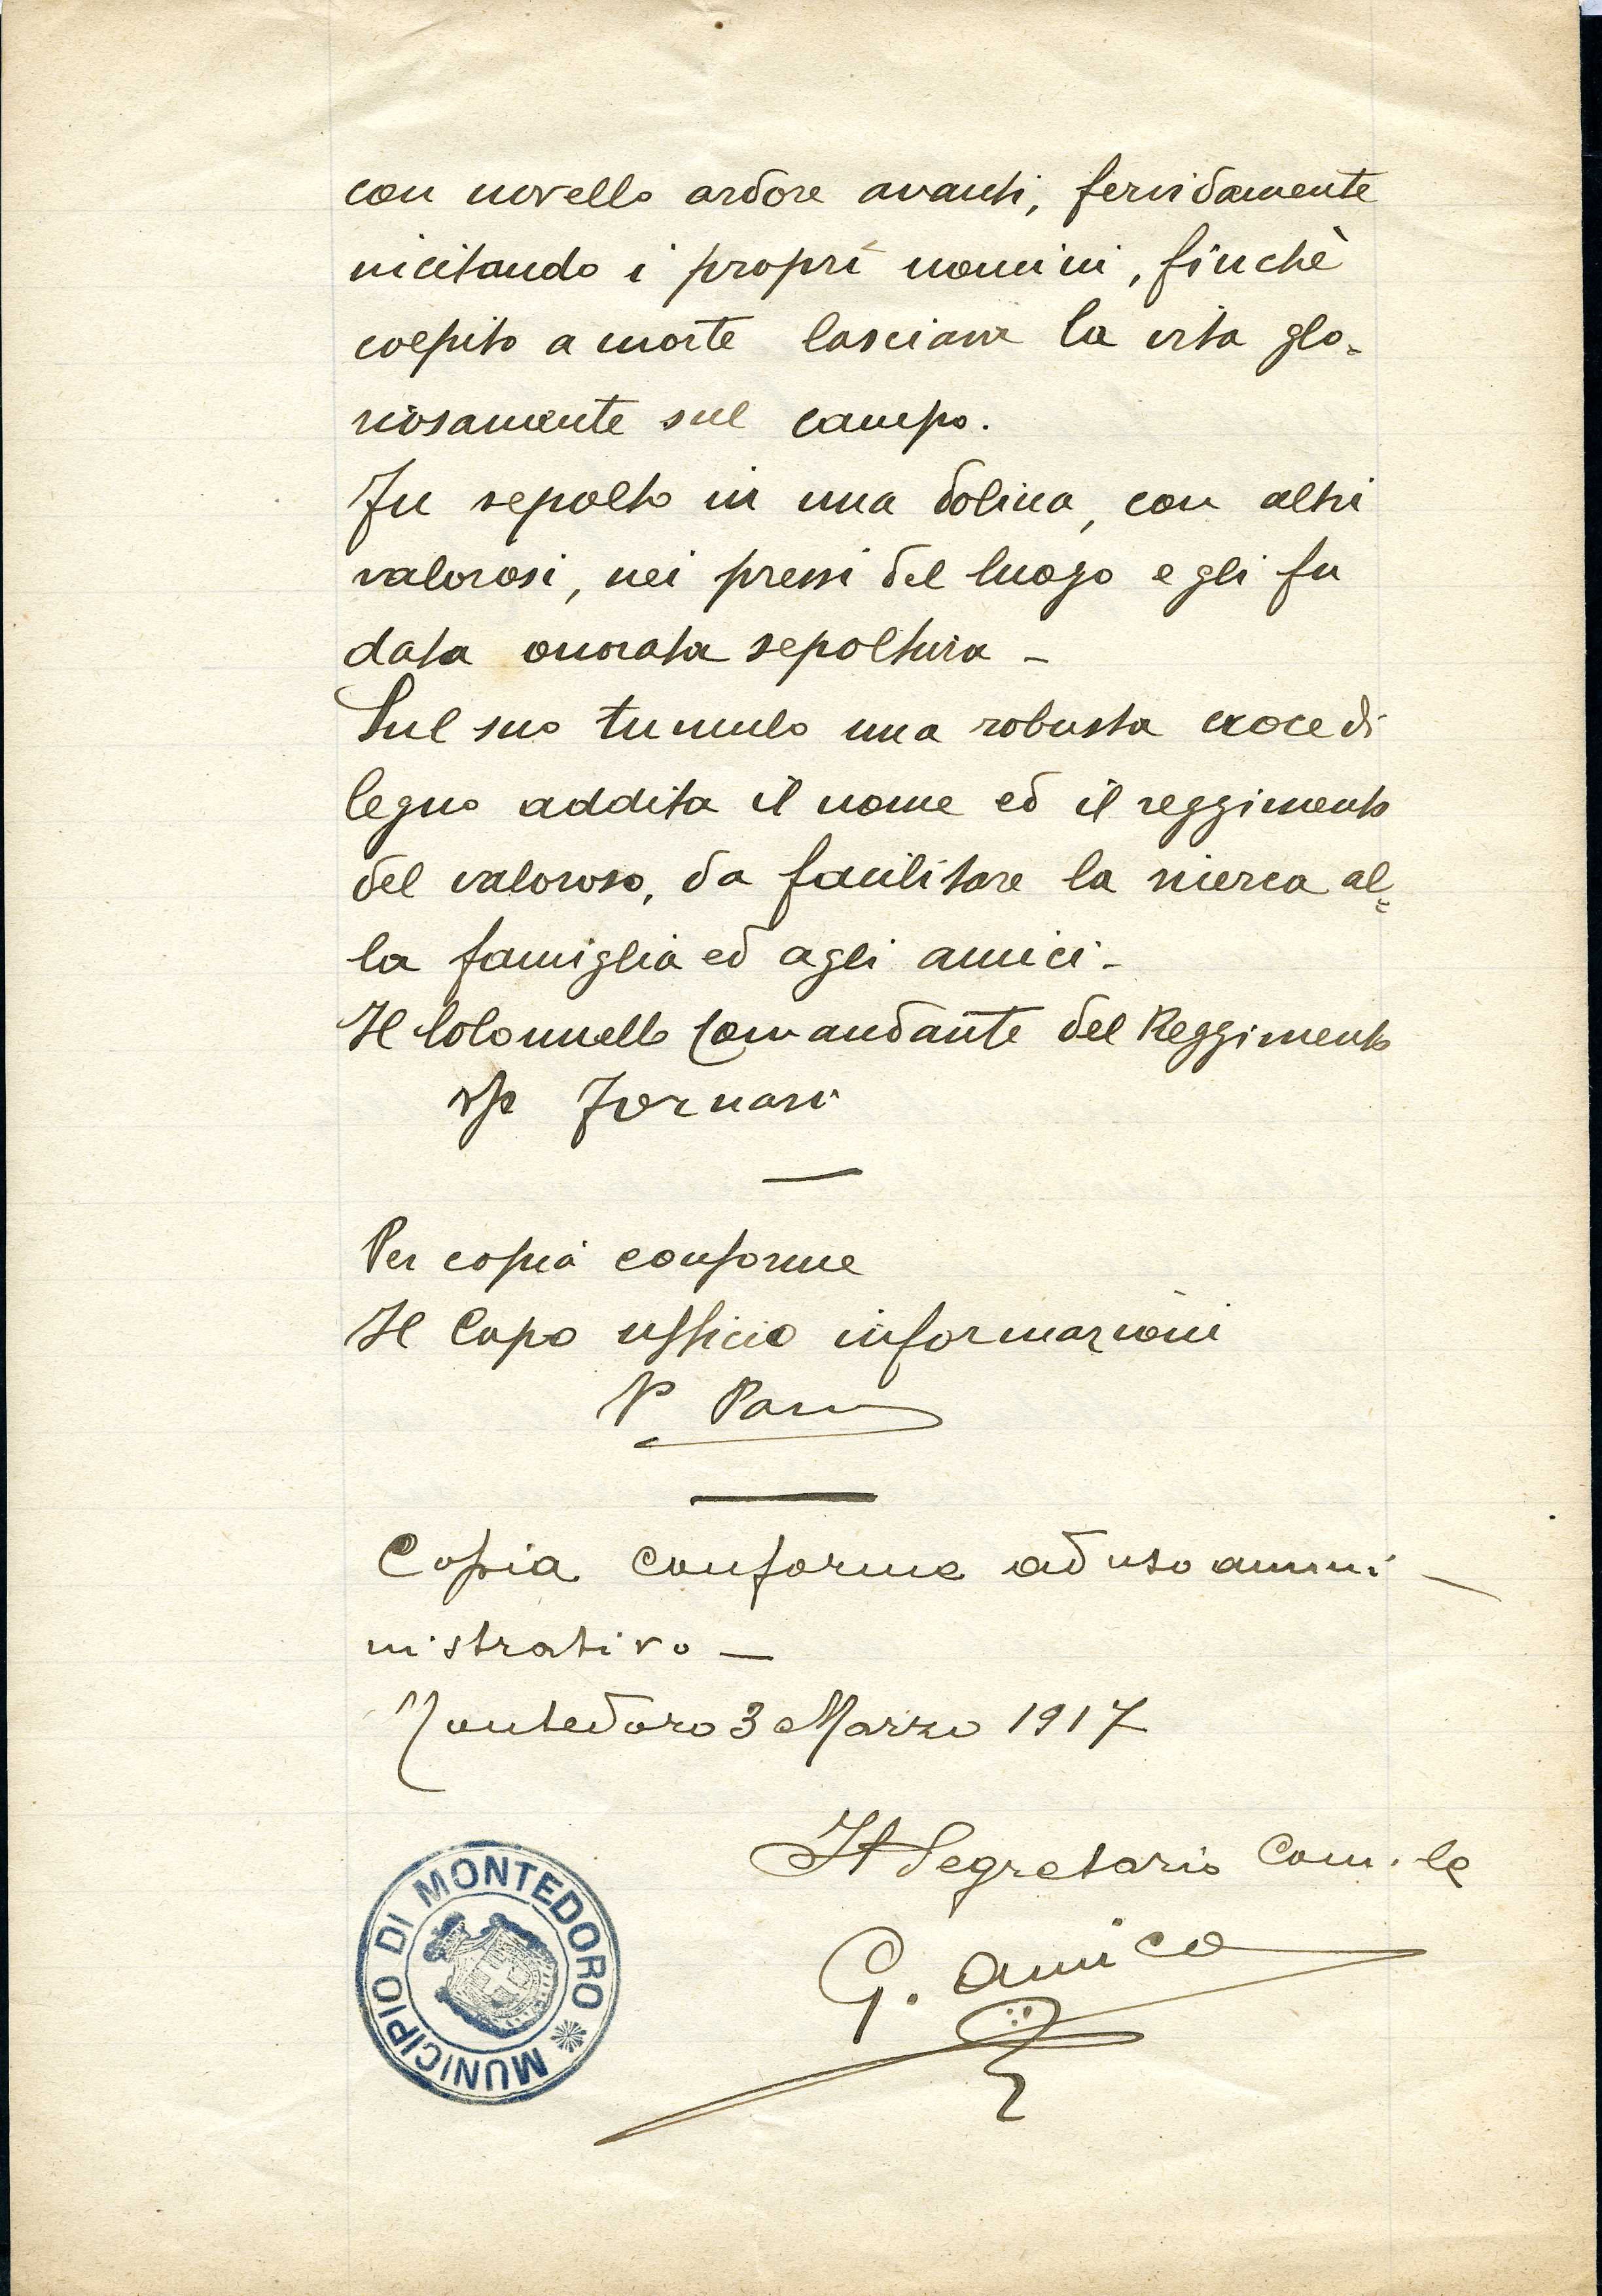 con novello ardore avanti, fervidamente
incitando i proprî uomini, finchè
colpito a morte lasciava la vita glo-
riosamente sul campo.
Fu sepolto in una dolina, con altri
valorosi, nei pressi del luogo e gli fu
data onorata sepoltura -
Sul suo tumulo una robusta croce di
legno addita il nome ed il reggimento
del valoroso, da facilitare la ricerca al=
la famiglia ed agli amici -
Il Colonnello Comandante del Reggimento
Fornari
Per copia conforme
Il Capo ufficio informazioni
Copia conforme ad uso ammi-
nistrativo -
Montedoro 3 Marzo 1917
Il Segretario Com.le
G. Amico
MUNICIPIO DI MONTEDORO